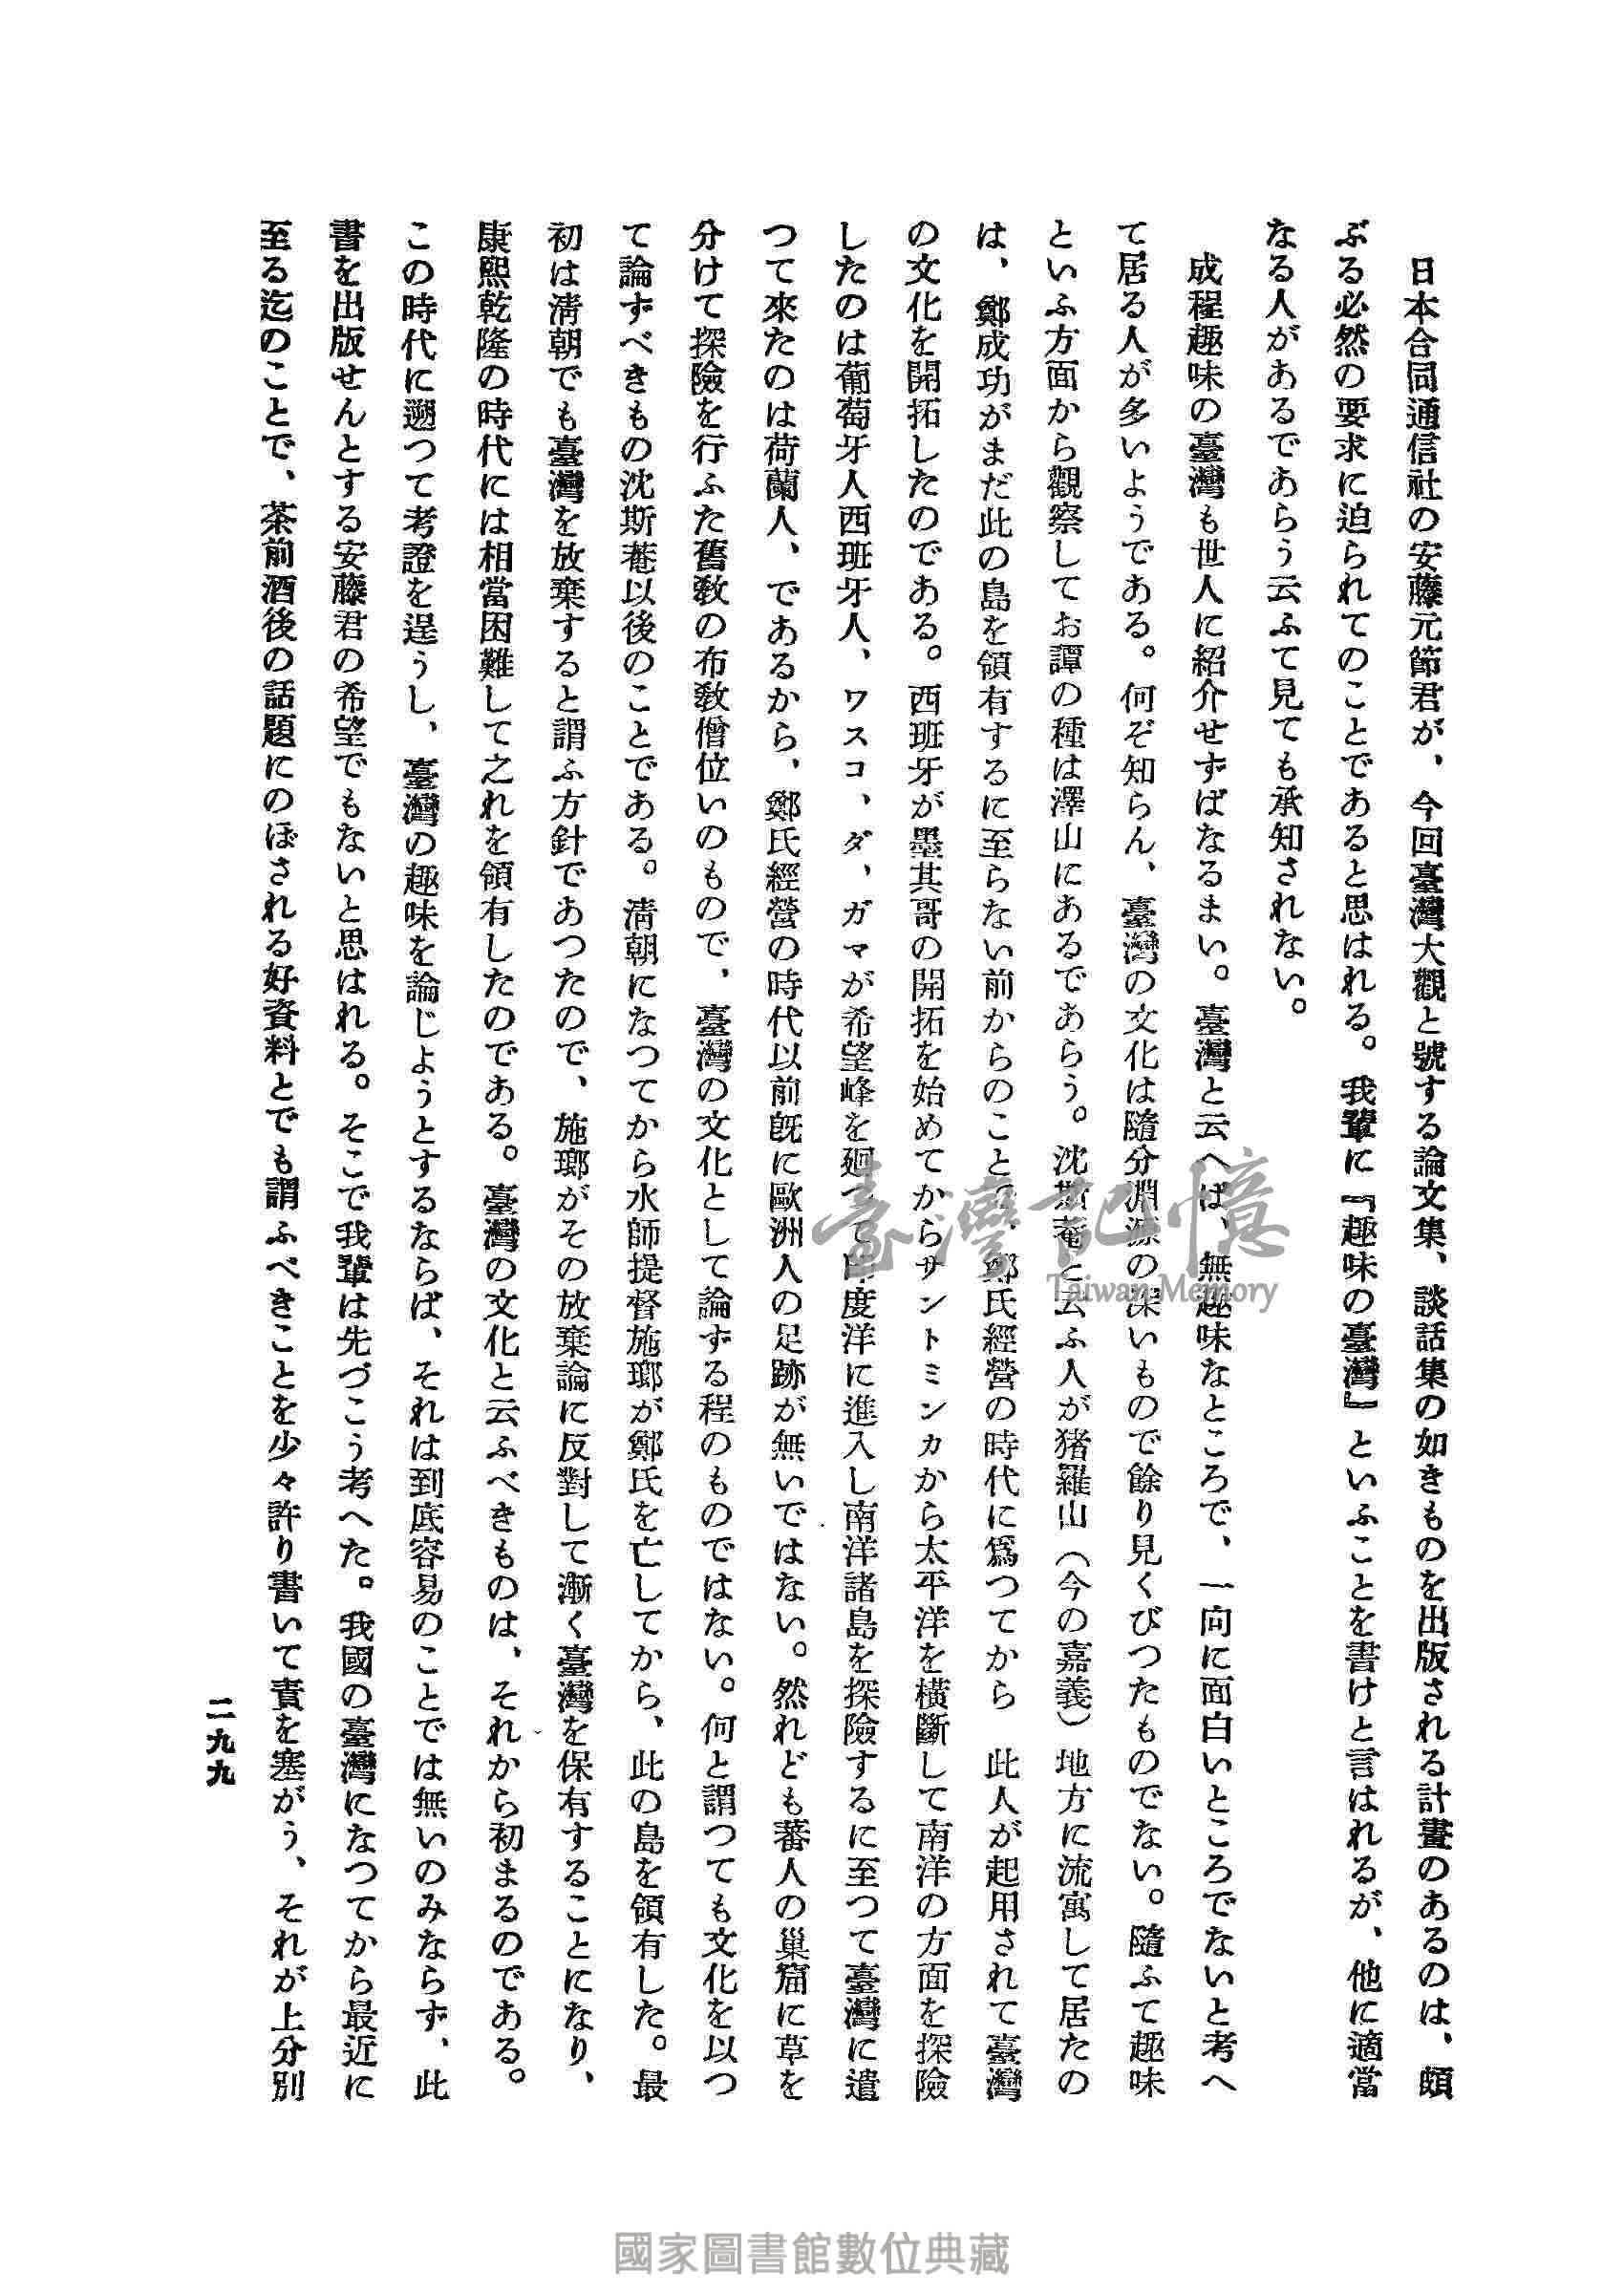 日本合同通信社の安藤元節君が、今回臺灣大觀と號する論文集、談話集の如きものを出版される計畫のあるのは、頗
ぶる必然の要求に迫られてのことであると思はれる。我輩に『趣味の臺灣』といふことを書けと言はれるが、他に適當
なる人があるであらう云ふて見ても承知されない。
成程趣味の臺灣も世人に紹介せずばなるまい。臺灣と云へば、無趣味なところで、一向に面白いところでないと考へ
て居る人が多いようである。何ぞ知らん、臺灣の文化は隨分淵源の深いもので餘り見くびつたものでない。隨ふて趣味
といふ方面から觀察してお譚の種は澤山にあるであらう。沈斯菴と云ふ人が猪羅山（今の嘉義）地方に流寓して居たの
は、鄭成功がまだ此の島を領有するに至らない前からのことで、鄭氏經營の時代に爲つてから 此人が起用されて臺灣
の文化を開拓したのである。西班牙が墨其哥の開拓を始めてからサントミンカから太平洋を横斷して南洋の方面を探險
したのは葡萄牙人西班牙人、ワスコ、ダ、ガマが希望峰を廻つて印度洋に進入し南洋諸島を探險するに至つて臺灣に遺
つて來たのは荷蘭人、であるから、鄭氏經營の時代以前旣に歐洲人の足跡が無いではない。然れども蕃人の巢窟に草を
分けて探險を行ふた舊敎の布敎僧位いのもので、臺灣の文化として論ずる程のものではない。何と謂つても文化を以つ
て論ずべきもの沈斯菴以後のことである。淸朝になつてから水師提督施瑯が鄭氏を亡してから、此の島を領有した。最
初は淸朝でも臺灣を放棄すると謂ふ方針であつたので、施瑯がその放棄論に反對して漸く臺灣を保有することになり、
康熙乾隆の時代には相當困難して之れを領有したのである。臺灣の文化と云ふべきものは、それから初まるのである。
この時代に遡つて考證を逞うし、臺灣の趣味を論じようとするならば、それは到底容易のことでは無いのみならず、此
書を出版せんとする安藤君の希望でもないと思はれる。そこで我輩は先づこう考へた。我國の臺灣になつてから最近に
至る迄のことで、茶前酒後の話題にのぼされる好資料とでも謂ふべきことを少々許り書いて責を塞がう、それが上分別
二九九
臺灣記憶
Taiwan Memory
國家圖書館數位典藏